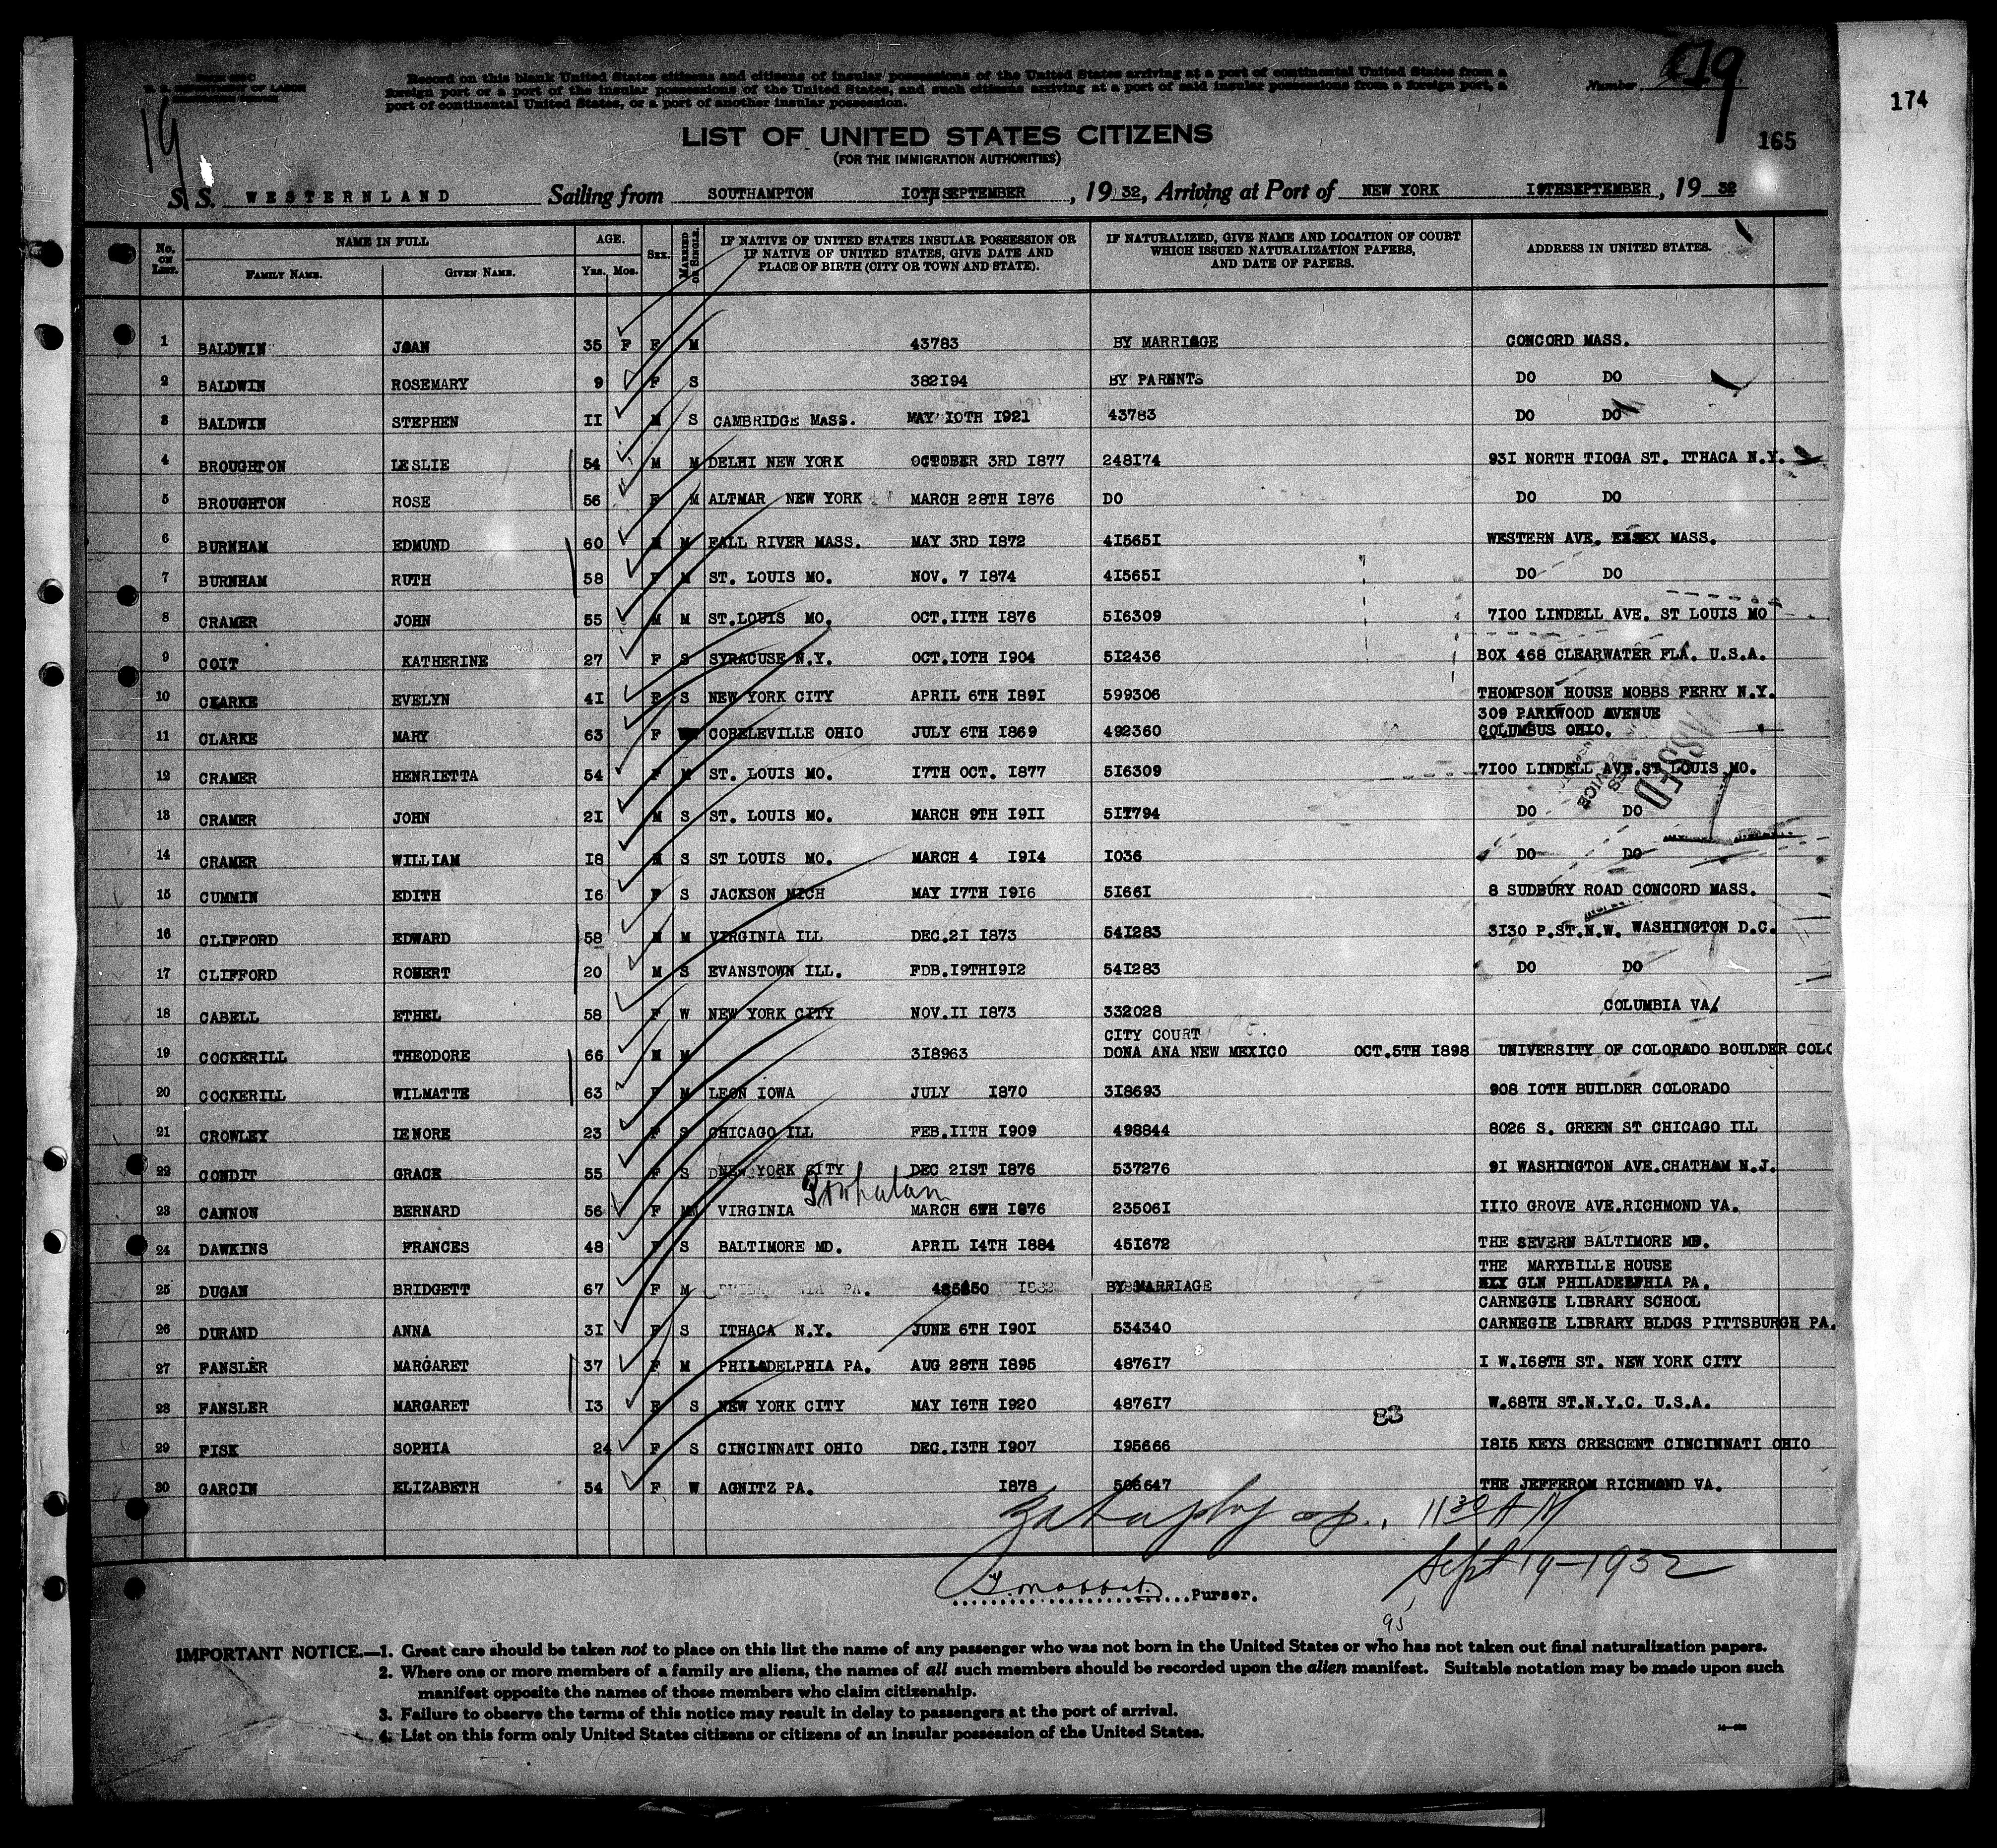 174
165
19
19
Number
U. S. DEPARTMENT OF LABOR
Record on this blank United States citizens and citizens of insular possessions of the United States arriving at a port of continental United States from a
foreign port or a port of the insular possessions of the United States, and such citizens arriving at a port of said insular possessions from a foreign port, a
port of continental United States, or a port of another insular possession.
LIST OF UNITED STATES CITIZENS
(FOR THE IMMIGRATION AUTHORITIES)
S. S. WESTERNLAND Sailing from SOUTHAMPTON 10TH SEPTEMBER, 1932, Arriving at Port of NEW YORK 19THSEPTEMBER, 19 32
No. ON LIST. NAME IN FULL FAMILY NAME. GIVEN NAME. AGE. YRS. MOS. SEX. MARRIED OR SINGLE. IF NATIVE OF UNITED STATES INSULAR POSSESSION OR IF NATIVE OF UNITED STATES, GIVE DATE AND PLACE OF BIRTH (CITY OR TOWN AND STATE). IF NATURALIZED, GIVE NAME AND LOCATION OF COURT WHICH ISSUED NATURALIZATION PAPERS, AND DATE OF PAPERS. ADDRESS IN UNITED STATES.
1 BALDWIN JOAN 35 F F M 43783 BY MARRIAGE CONCORD MASS.
2 BALDWIN ROSEMARY 9 F S 382194 BY PARNNTS DO DO
3 BALDWIN STEPHEN 11 M S CAMBRIDGE MASS. MAY 10TH 1921 43783 DO DO
4 BROUGHTON LESLIE 54 M M DELHI NEW YORK OCTOBER 3RD 1877 248174 931 NORTH TIOGA ST. ITHACA N.Y.
5 BROUGHTON ROSE 56 F M ALTMAR NEW YORK MARCH 28TH 1876 DO DO DO
6 BURNHAM EDMUND 60 M M FALL RIVER MASS. MAY 3RD 1872 415651 WESTERN AVE. ESSEX MASS.
7 BURNHAM RUTH 58 F M ST. LOUIS MO. NOV. 7 1874 415651 DO DO
8 CRAMER JOHN 55 M M ST.LOUIS MO. OCT.11TH 1876 516309 7100 LINDELL AVE. ST LOUIS MO
9 COIT KATHERINE 27 F S SYRACUSE N.Y. OCT.10TH 1904 512436 BOX 468 CLEARWATER FLA. U.S.A.
10 CLARKE EVELYN 41 F S NEW YORK CITY APRIL 6TH 1891 599306 THOMPSON HOUSE MOBBS FERRY N.Y.
309 PARKWOOD AVENUE
11 CLARKE MARY 63 F COBELEVILLE OHIO JULY 6TH 1869 492360 COLUMBUS OHIO.
12 CRAMER HENRIETTA 54 F M ST. LOUIS MO. 17TH OCT. 1877 516309 7100 LINDELL AVE.ST LOUIS MO.
13 CRAMER JOHN 21 M S ST. LOUIS MO. MARCH 9TH 1911 517794 DO DO
14 CRAMER WILLIAM 18 M S ST LOUIS MO. MARCH 4 1914 1036 DO DO
15 CUMMIN EDITH 16 F S JACKSON MICH MAY 17TH 1916 51661 8 SUDBURY ROAD CONCORD MASS.
16 CLIFFORD EDWARD 58 M M VIRGINIA ILL DEC.21 1873 541283 3130 P.ST.N.W. WASHINGTON D.C.
17 CLIFFORD ROBERT 20 M S EVANSTOWN ILL. FDB.19TH1912 541283 DO DO
18 CABELL ETHEL 58 F W NEW YORK CITY NOV.11 1873 332028 COLUMBIA VA.
CITY COURT
19 COCKERILL THEODORE 66 M M 318963 DONA ANA NEW MEXICO OCT.5TH 1898 UNIVERSITY OF COLORADO BOULDER COLO
20 COCKERILL WILMATTE 63 F M LEON IOWA JULY 1870 318693 908 10TH BUILDER COLORADO
21 CROWLEY LENORE 23 F S CHICAGO ILL FEB.11TH 1909 498844 8026 S. GREEN ST CHICAGO ILL
22 CONDIT GRACE 55 F S NEW YORK CITY DEC 21ST 1876 537276 91 WASHINGTON AVE.CHATHAM N.J.
Powhatan
23 CANNON BERNARD 56 F VIRGINIA MARCH 6TH 1876 235061 1110 GROVE AVE.RICHMOND VA.
24 DAWKINS FRANCES 48 F S BALTIMORE MD. APRIL 14TH 1884 451672 THE SEVERN BALTIMORE MD.
THE MARYBILLE HOUSE
25 DUGAN BRIDGETT 67 F M BY MARRIAGE GLN PHILADELPHIA PA.
CARNEGIE LIBRARY SCHOOL
26 DURAND ANNA 31 F S ITHACA N.Y. JUNE 6TH 1901 534340 CARNEGIE LIBRARY BLDGS PITTSBURGH PA.
27 FANSLER MARGARET 37 F M PHILADELPHIA PA. AUG 28TH 1895 487617 1 W.168TH ST. NEW YORK CITY
28 FANSLER MARGARET 13 F S NEW YORK CITY MAY 16TH 1920 487617 W.68TH ST.N.Y.C. U.S.A.
83
29 FISK SOPHIA 24 F S CINCINNATI OHIO DEC.13TH 1907 195666 1815 KEYS CRESCENT CINCINNATI OHIO
30 GARCIN ELIZABETH 54 F W AGNITZ PA. 1878 506647 THE JEFFEROM RICHMOND VA.
PASSED
11 30 AM
Sept 19-1932
Purser.
95
IMPORTANT NOTICE.—1. Great care should be taken not to place on this list the name of any passenger who was not born in the United States or who has not taken out final naturalization papers.
2. Where one or more members of a family are aliens, the names of all such members should be recorded upon the alien manifest. Suitable notation may be made upon such
manifest opposite the names of those members who claim citizenship.
3. Failure to observe the terms of this notice may result in delay to passengers at the port of arrival.
4. List on this form only United States citizens or citizens of an insular possession of the United States.